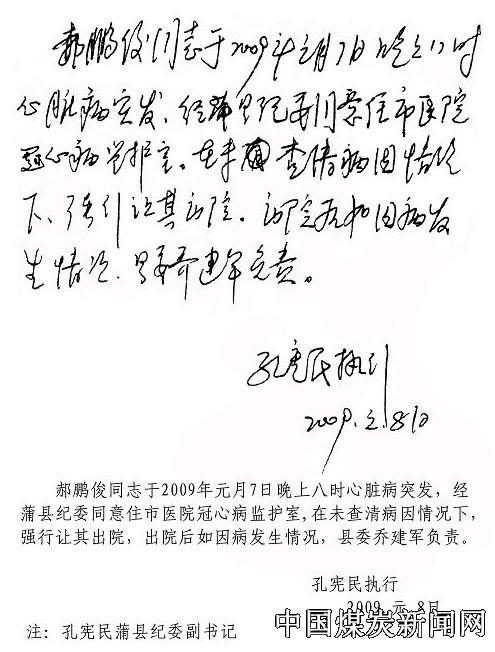 郝鹏俊同志于2009年元月7日晚上八时
心脏病突发、经蒲县纪委同意住市医院
冠心病监护室。在未查清病因情况
下、强行让其出院。出院后如因病发
生情况、县委乔建军负责。
孔宪民执行
2009.元.8日
郝鹏俊同志于2009年元月7日晚上八时心脏病突发，经
蒲县纪委同意住市医院冠心病监护室,在未查清病因情况下,
强行让其出院，出院后如因病发生情况，县委乔建军负责。
孔宪民执行
2009.元.8日
中国煤炭新闻网
注：孔宪民蒲县纪委副书记